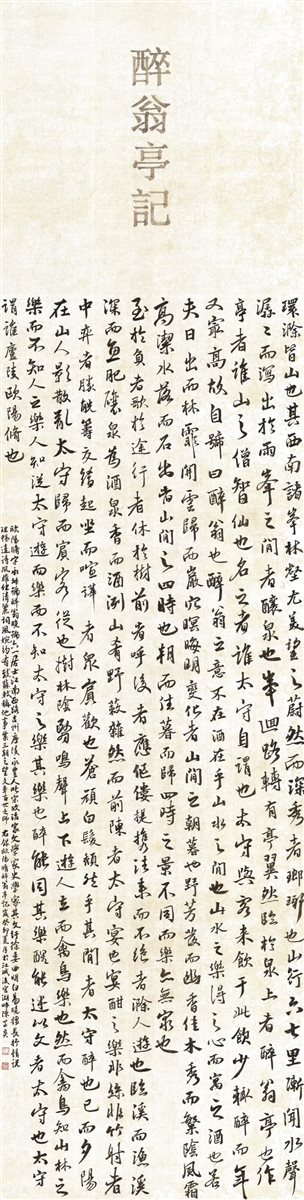 醉翁亭記
環滁皆山也其西南諸峯林壑尤美望之蔚然而深秀者瑯琊也山行六七里漸聞水聲
潺〻而瀉出於兩峯之間者釀泉也峯迴路轉有亭翼然臨於泉上者醉翁亭也作
亭者誰山之僧智仙也名之者誰太守自謂也太守與客來飲于此飲少輒醉而年
又寂高故自號曰醉翁也醉翁之意不在酒在乎山水之間也山水之樂得之心而寓之酒也若
夫日出而林霏開雲歸而巖穴暝晦明變化者山間之朝暮也野芳發而幽香佳木秀而繁陰風霜
高潔水落而石出者山間之四時也朝而往暮而歸四時之景不同而樂亦無窮也
至於負者歌於途行者休於樹前者呼後者應傴僂提攜往來而不絕者滁人遊也臨溪而漁溪
深而魚肥釀泉為酒泉香而酒洌山肴野蔌雜然而前陳者太守宴也宴酣之樂非絲非竹射者
中弈者勝觥籌交錯起坐而喧譁者眾賓歡也蒼顏白髮頹然乎其間者太守醉也已而夕陽
在山人影散亂太守歸而賓客從也樹林陰翳鳴聲上下遊人去而禽鳥樂也然而禽鳥知山林之
樂而不知人之樂人知從太守遊而樂而不知太守之樂其樂也醉能同其樂醒能述以文者太守也太守
謂誰廬陵歐陽脩也